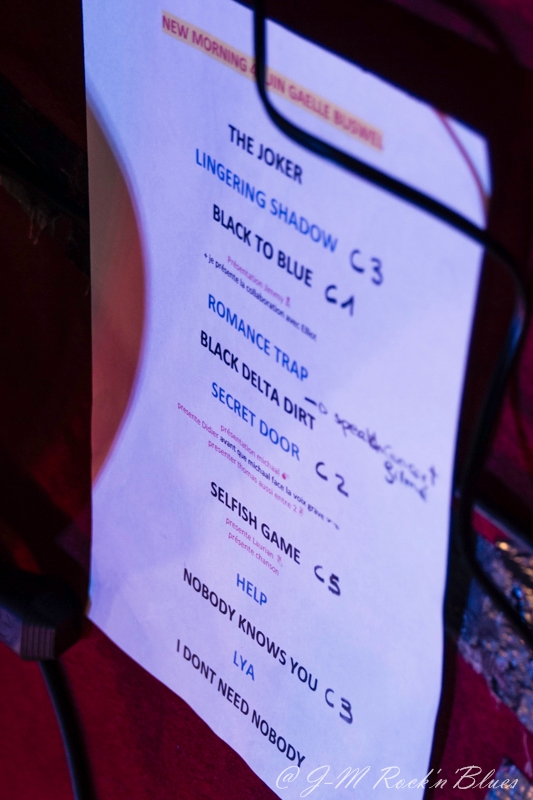 NEW MORNING JUIN GAELLE BUSWEL
THE JOKER
LINGERING SHADOW C3
BLACK TO BLUE C1
Présentation Jimmy
+ je présente la collaboration avec Elliot
ROMANCE TRAP
BLACK DELTA DIRT
SECRET DOOR C2
présentation michaal
presente Didier avant que michaal face la voix grave
presenter thomas aussi entre 2
SELFISH GAME C5
presente Laurian
présente chanson
HELP
NOBODY KNOWS YOU C3
LYA
I DONT NEED NOBODY
@ J-M Rock'n'Blues